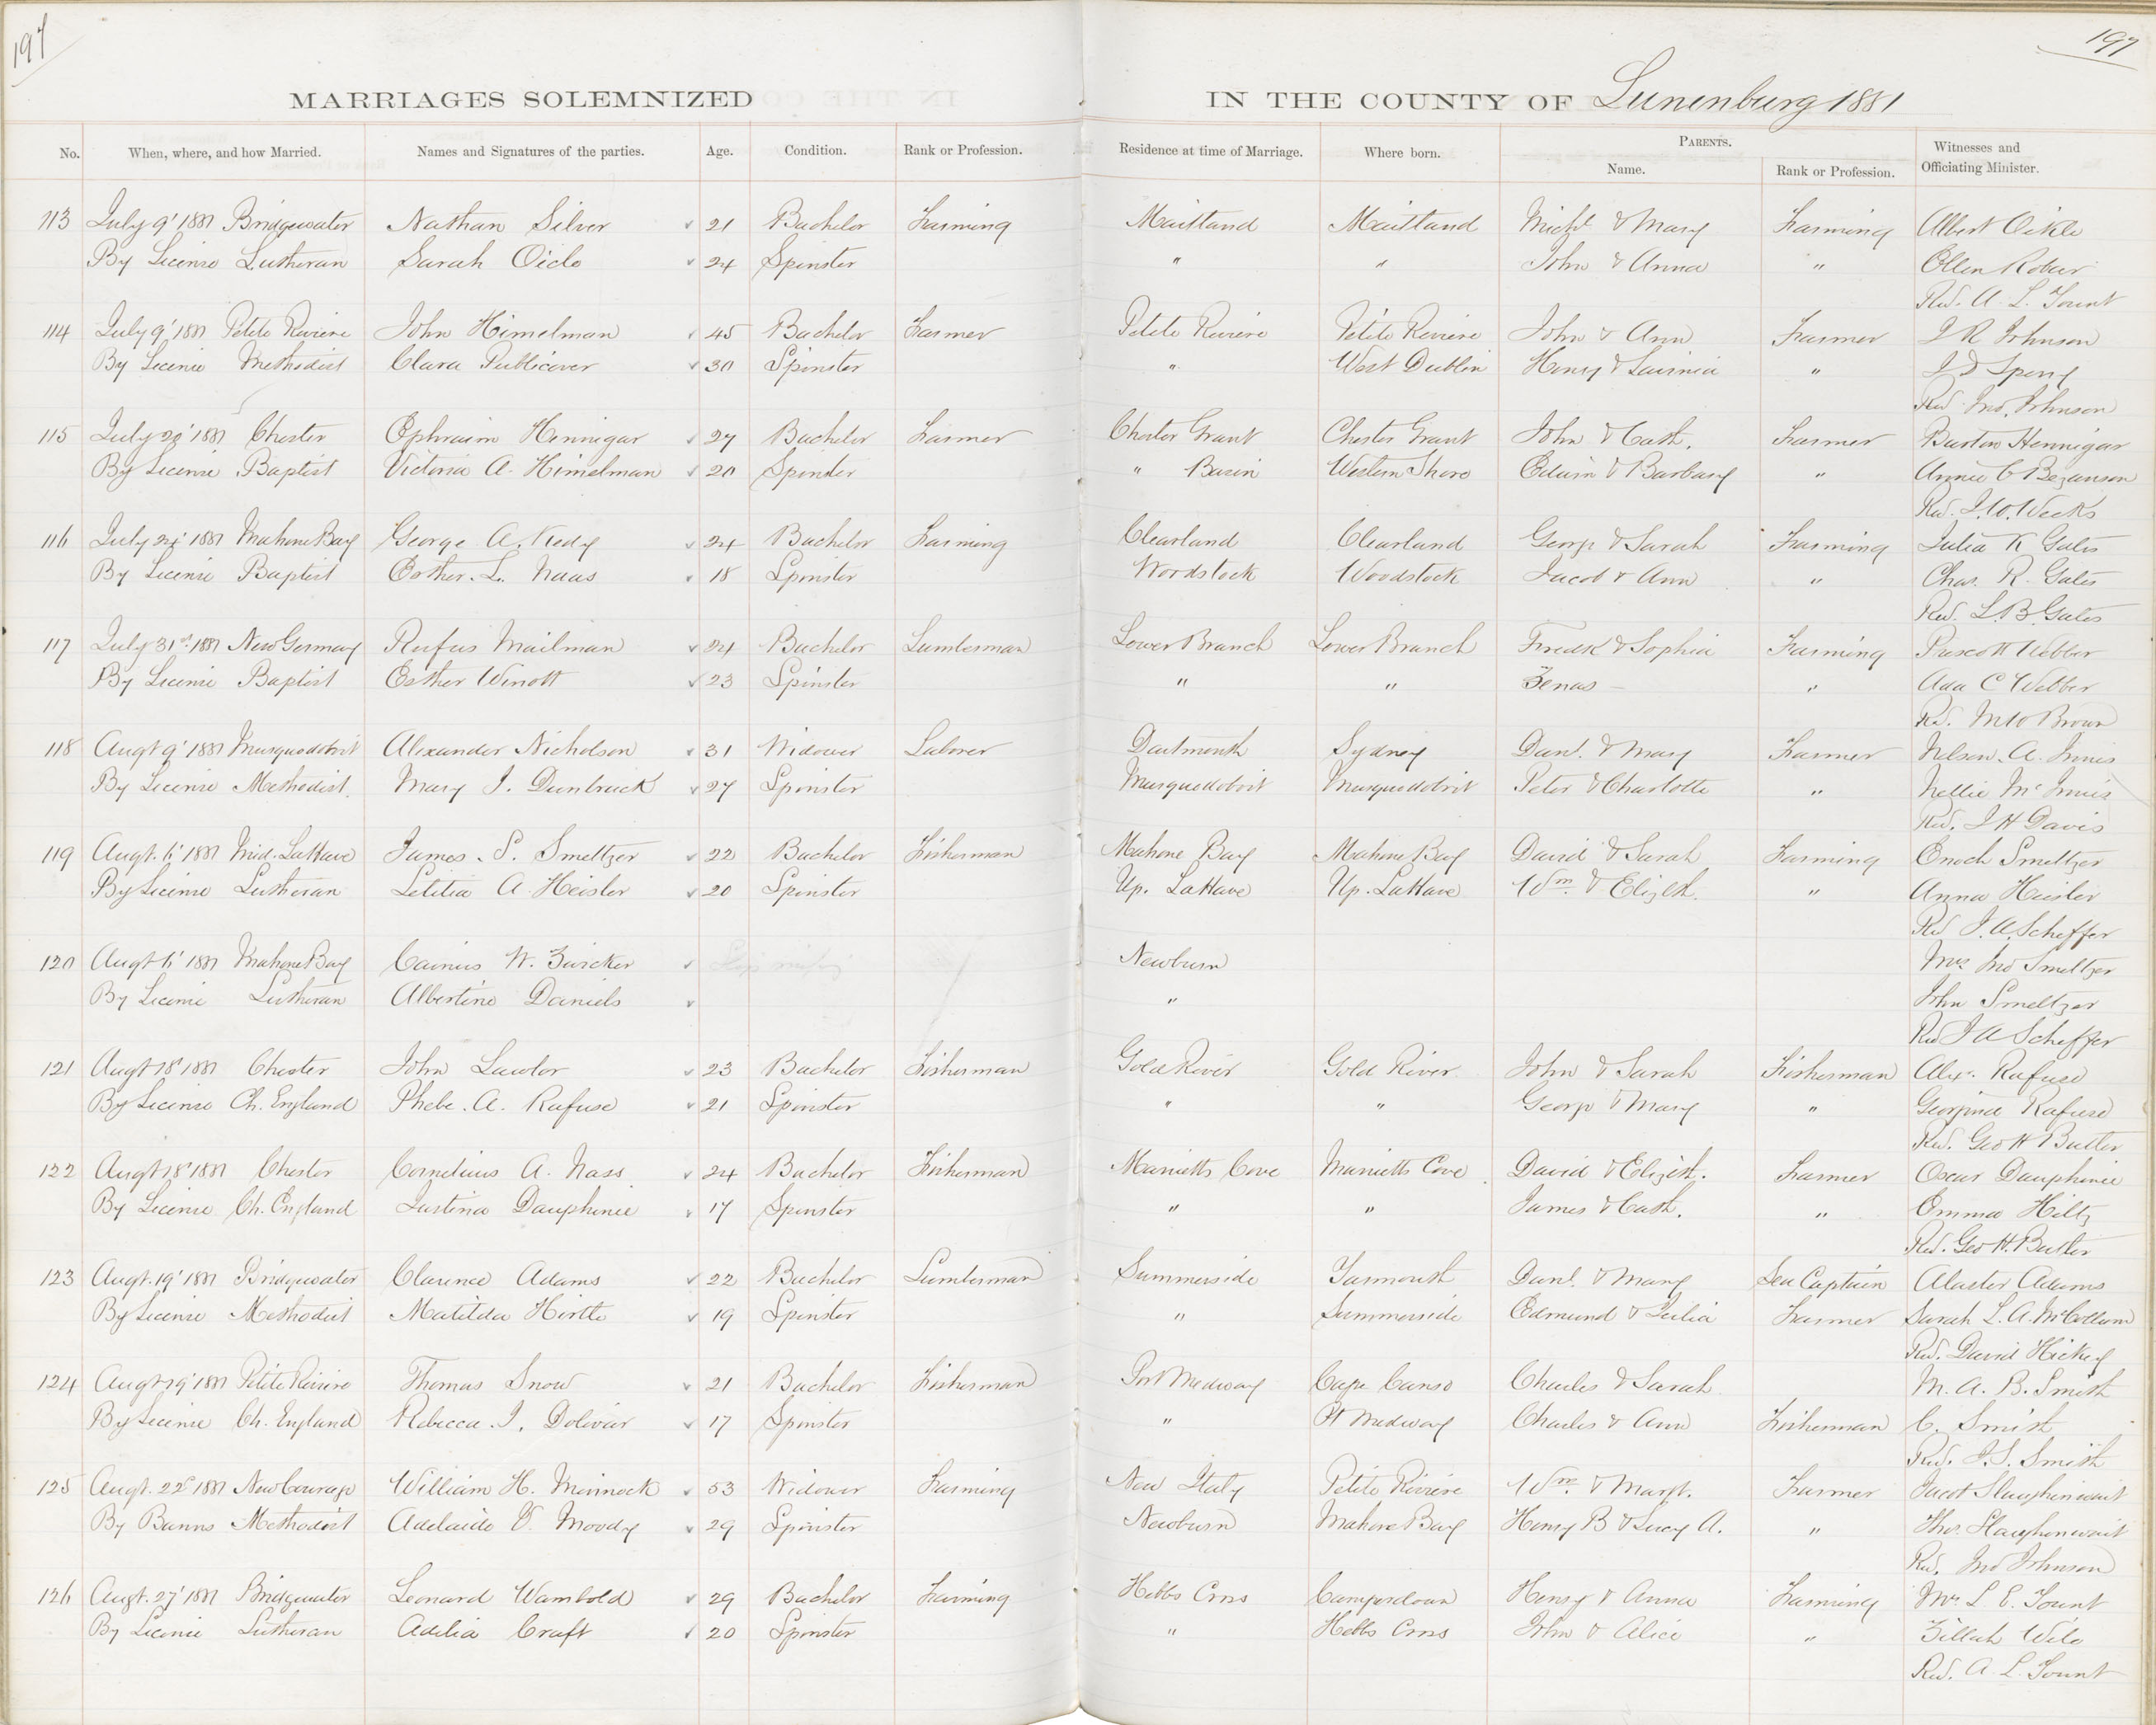 197
197
MARRIAGES SOLEMNIZED IN THE COUNTY OF Lunenburg 1881
No. When, where, and how Married. Names and Signatures of the parties. Age. Condition. Rank or Profession. Residence at time of Marriage. Where born. PARENTS. Name. Rank or Profession. Witnesses and Officiating Minister.
113 July 9' 1881 Bridgewater Nathan Silver 21 Bachelor Farming Maitland Maitland Michl & Mary Farming Albert Oikle
By License Lutheran Sarah Oicle 24 Spinster " " John & Anna " Ellen Robar
Rev. A. L. Yount
114 July 9' 1881 Petite Riviere John Himelman 45 Bachelor Farmer Petite Riviere Petite Riviere John & Ann Farmer J R Johnson
By License Methodist Clara Publicover 30 Spinster " West Dublin Henry & Lavinia " J D Sperry
Rev. Jno. Johnson
115 July 1881 Chester Ephraim Hennigar 27 Bachelor Farmer Chester Grant Chester Grant John & Cath. Farmer Burton Hennigar
By License Baptist Victoria A. Himelman 20 Spinster " Basin Western Shore Edwin & Barbary " Annie C Bezanson
Rev. I. W. Weeks
116 July 24' 1881 Mahone Bay George A. Kedy 24 Bachelor Farming Clearland Clearland George & Sarah Farming Julia K Gates
By License Baptist Esther. L. Naas 18 Spinster Woodstock Woodstock Jacob & Ann " Chas. R. Gates
Rev. L. B. Gates
117 July 31st 1881 New Germany Rufus Mailman 24 Bachelor Lumberman Lower Branch Lower Branch Fredk & Sophia Farming Prescott Webber
By License Baptist Esther Winott 23 Spinster " " Zenas — " Ada C Webber
Rev. M W Brown
118 Augt 9' 1881 Musquodoboit Alexander Nicholson 31 Widower Laborer Dartmouth Sydney Danl. & Mary Farmer Nelson. A. Innis
By License Methodist. Mary J. Dunbrack 27 Spinster Musquodoboit Musquodobit Peter & Charlotte " Nellie McInnis
Rev. J H Davis
119 Augt. 6' 1881 Mid. LaHave James. S. Smeltzer 22 Bachelor Fisherman Mahone Bay Mahone Bay David & Sarah Farming Enoch Smeltzer
By License Lutheran Letitia A. Heisler 20 Spinster Up. LaHave Up. LaHave Wm. & Elizbth. " Anna Heisler
Rev J. A. Scheffer
120 Augt 6' 1881 Mahone Bay Cainus W. Zwicker Newburn Mrs Jno Smeltzer
By License Lutheran Albertine Daniels " John Smeltzer
Rev J A Scheffer
121 Augt 18' 1881 Chester John Lawlor 23 Bachelor Fisherman Gold River Gold River John & Sarah Fisherman Alex. Rafuse
By License Ch. England Phebe. A. Rafuse 21 Spinster " " George & Mary " Georgina Rafuse
Rev. Geo H Butler
122 Augt 18' 1881 Chester Cornelius A. Nass 24 Bachelor Fisherman Marietts Cove Marietts Cove David & Elizbth. Farmer Oscar Dauphinie
By License Ch. England Justina Dauphinie 17 Spinster " " James & Cath. " Emma Hiltz
Rev. Geo H. Butler
123 Augt. 19' 1881 Bridgewater Clarence Adams 22 Bachelor Lumberman Summerside Yarmouth Danl. & Mary Sea Captain Alaster Adams
By License Methodist Matilda Hirtle 19 Spinster " Summerside Edmund & Julia Farmer Sarah L. A. McCollum
Rev. David Hickey
124 Augt 19' 1881 Petite Riviere Thomas Snow 21 Bachelor Fisherman Port Medway Cape Canso Charles & Sarah M. A. B. Smith
By License Ch. England Rebecca. J. Dolivar 17 Spinster " Pt Medway Charles & Ann Fisherman C. Smith
Rev. J. S. Smith
125 Augt. 22d 1881 New Cornwall William H. Minnock 53 Widower Farming New Italy Petite Riviere Wm. & Margt. Farmer Jacob Slaughenwait
By Banns Methodist Adelaide V. Moody 29 Spinster Newburn Mahone Bay Henry B & Lucy A. " Thos. Slaughenwait
Rev. Jno Johnson
126 Augt. 27' 1881 Bridgewater Leonard Wambold 29 Bachelor Farming Hebbs Cross Camperdown Henry & Anna Farming Mrs L E. Yount
By License Lutheran Adelia Craft 20 Spinster " Hebbs Cross John & Alice " Zillah Wile
Rev. A. L. Yount